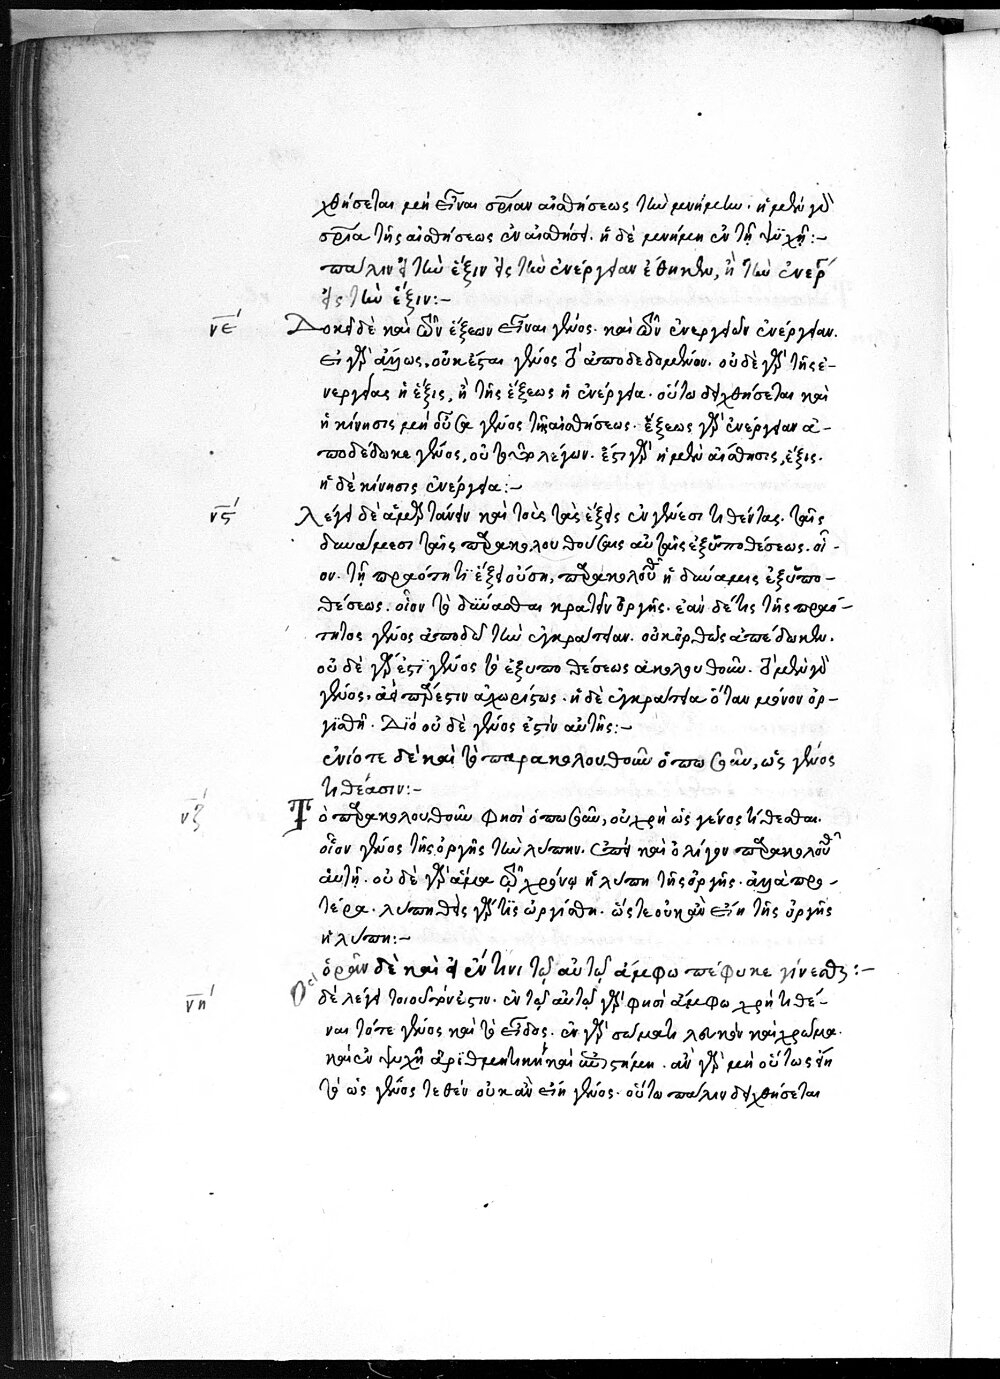 χθήσεται μὴ εἶναι στέρησιν αἰσθήσεως τὴν μνήμην. ἡ μὲν γὰρ
τῆς αἰσθήσεως ἐν αἰσθήσει. ἡ δὲ μνήμη ἐν τῇ ψυχῇ:-
πάλιν εἰ τὴν ἕξιν εἰς τὴν ἐνέργειαν ἔθηκεν, ἢ τὴν ἐνέρ
εἰς τὴν ἕξιν:-
νε΄ Δοκεῖ δὲ καὶ τῶν ἕξεων εἶναι γένος. καὶ τῶν ἐνεργειῶν ἐνέργειαν.
εἰ γὰρ ἄλλως, οὐκ ἔσται γένος τὸ ἀποδεδομένον. οὐδὲ γὰρ τῆς ἐ-
νεργείας ἡ ἕξις, ἢ τῆς ἕξεως ἡ ἐνέργεια. οὕτω δειχθήσεται καὶ
ἡ κίνησις μὴ οὖσα γένος τῆς αἰσθήσεως. ἕξεως γὰρ ἐνέργειαν ἀ-
ποδέδωκε γένος, ὁ τοῦτο λέγων. ἔστι γὰρ ἡ μὲν αἴσθησις, ἕξις.
ἡ δὲ κίνησις ἐνέργεια:-
νς΄ λέγει δὲ ἁμαρτάνειν καὶ τοὺς τὰς ἕξεις ἐν γένεσι τιθέντας. ταῖς
δυνάμεσι ταῖς παρακολουθούσαις αὐταῖς ἐξ ὑποθέσεως. οἷ-
ον. τῇ πραότητι ἕξει οὔσῃ, παρακολουθεῖ ἡ δύναμις ἐξ ὑπο-
θέσεως. οἷον τὸ δύνασθαι κρατεῖν ὀργῆς. ἐὰν δέ τις τῆς πραό-
τητος γένος ἀποδῷ τὴν ἐγκράτειαν. οὐκ ὀρθῶς ἀπέδωκεν.
οὐδὲ γάρ ἐστι γένος τὸ ἐξ ὑποθέσεως ἀκολουθοῦν. τὸ μὲν γὰρ
γένος, ἀεὶ πάρεστιν ἀχωρίστως. ἡ δὲ ἐγκράτεια ὅταν μόνον ὀρ-
γισθῇ. Διὸ οὐδὲ γένος ἐστὶν αὐτῆς:-
ἐνίοτε δὲ καὶ τὸ παρακολουθοῦν ὁπωσοῦν, ὡς γένος
τιθέασιν:-
νζ΄ Τὸ παρακολουθοῦν φησὶ ὁπωσοῦν, οὐ χρὴ ὡς γένος τίθεσθαι.
οἷον γένος τῆς ὀργῆς τὴν λύπην. ἐπεὶ καὶ ὀλίγον παρακολουθεῖ
αὐτῇ. οὐδὲ γὰρ ἅμα τῷ χρόνῳ ἡ λύπη τῆς ὀργῆς. ἀλλὰ προ-
τέρα. λυπηθεὶς γάρ τις ὠργίσθη. ὥστε οὐκ ἂν εἴη τῆς ὀργῆς
ἡ λύπη:-
ὁρᾶν δὲ καὶ εἰ ἔν τινι τῷ αὐτῷ ἄμφω πέφυκε γίνεσθαι:-
νη΄ Ὃ δὲ λέγει τοιοῦτόν ἐστιν. ἐν τῷ αὐτῷ γὰρ φησὶ ἄμφω χρὴ τιθέ-
ναι τό τε γένος καὶ τὸ εἶδος. ἐν γὰρ σώματι λευκὸν καὶ χρῶμα.
καὶ ἐν ψυχῇ ἀριθμητικὴ καὶ ἐπιστήμη. ἂν γὰρ μὴ οὕτως ἔχῃ
τὸ ὡς γένος τεθὲν οὐκ ἂν εἴη γένος. οὕτω πάλιν δειχθήσεται